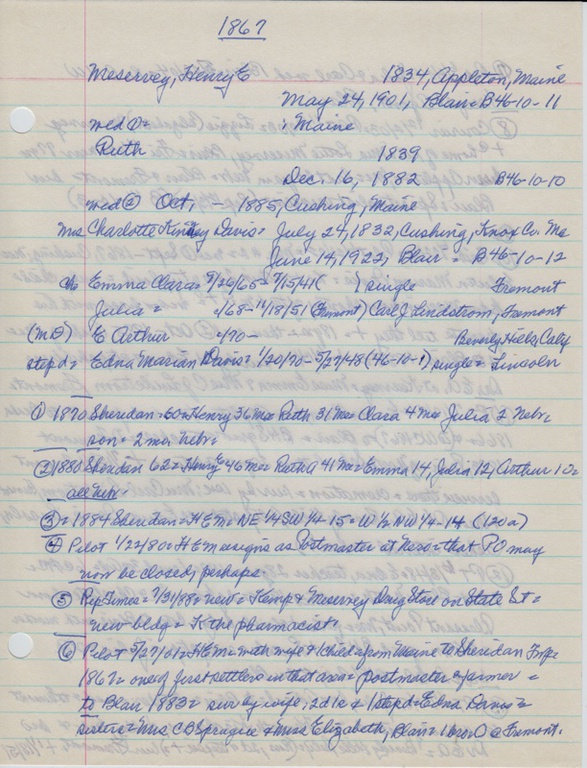 1867
Meservey, Henry E 1834, Appleton, Maine
May 24, 1901, Blair = B46-10-11
wed ① = : Maine
Ruth 1839
Dec. 16, 1882 B46-10-10
wed ② Oct, - 1885, Cushing, Maine
Mrs Charlotte Davis = July 24, 1832, Cushing, Knox Co. Me
June 14, 1922, Blair = B46-10-12
ch Emma Clara = 9/26/65 = 7/15/41 ( ) single Fremont
Julia = /68 - 11/18/51 (Fremont) Carl J. Lindstrom, Fremont
(MD) E Arthur /70 - Beverly Hills, Caly
stepd = Edna Marian Davis = 1/20/70 - 5/27/48 (46-10-1) single = Lincoln
① 1870 Sheridan = 60 = Henry 36 Me = Ruth 31 Me = Clara 4 Me = Julia 2 Nebr =
son = 2 mo = Nebr.
② 1880 Sheridan 62 = Henry E 46 Me = Ruth A 41 Me = Emma 14, Julia 12, Arthur 10 =
all
③ = 1884 Sheridan = H E M = NE 1/4 SW 1/4 - 15 = W 1/2 NW 1/4 - 14 (120 a)
④ Pilot 1/22/80 = H E M resigns as Postmaster at = that PO may
now be closed, perhaps.
⑤ Rep Times = 7/31/88 = new = Kemp & Meservey Drug Store on State St =
new bldg = K the pharmacist.
⑥ Pilot 5/27/01 = H E M = with wife & 1 child = from Maine to Sheridan Twp =
1867 = one of first settlers in that area = postmaster & farmer =
to Blair 1883 = surv by wife, 2d 1s & 1 stepd = Edna Davis =
sisters = Mrs C B Sprague & Miss Elizabeth, Blair = 1 bro O @ Fremont.